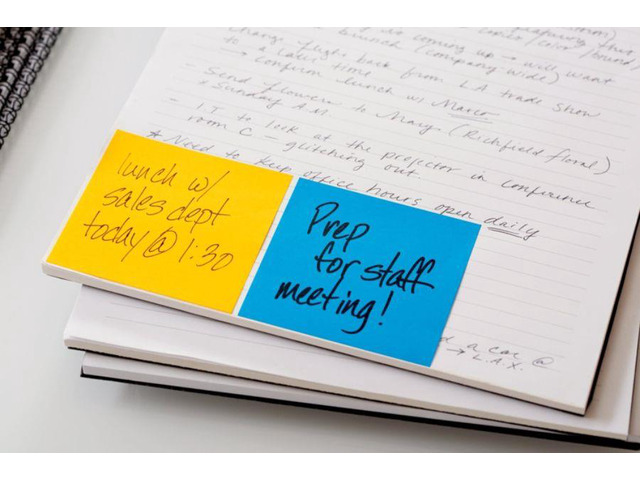 do coming up → will want
brunch (company-wide)
change flight back from L.A trade show
to a later time
→ confirm lunch w/ Marco
- Send flowers to Mary (Richfield floral)
* Sunday AM
- I.T to look at the projector in conference
room C - glitching out
* Need to keep office hours open daily
lunch w/
sales dept
today @ 1:30
Prep
for staff
meeting!
a car @
→ L.A.X.